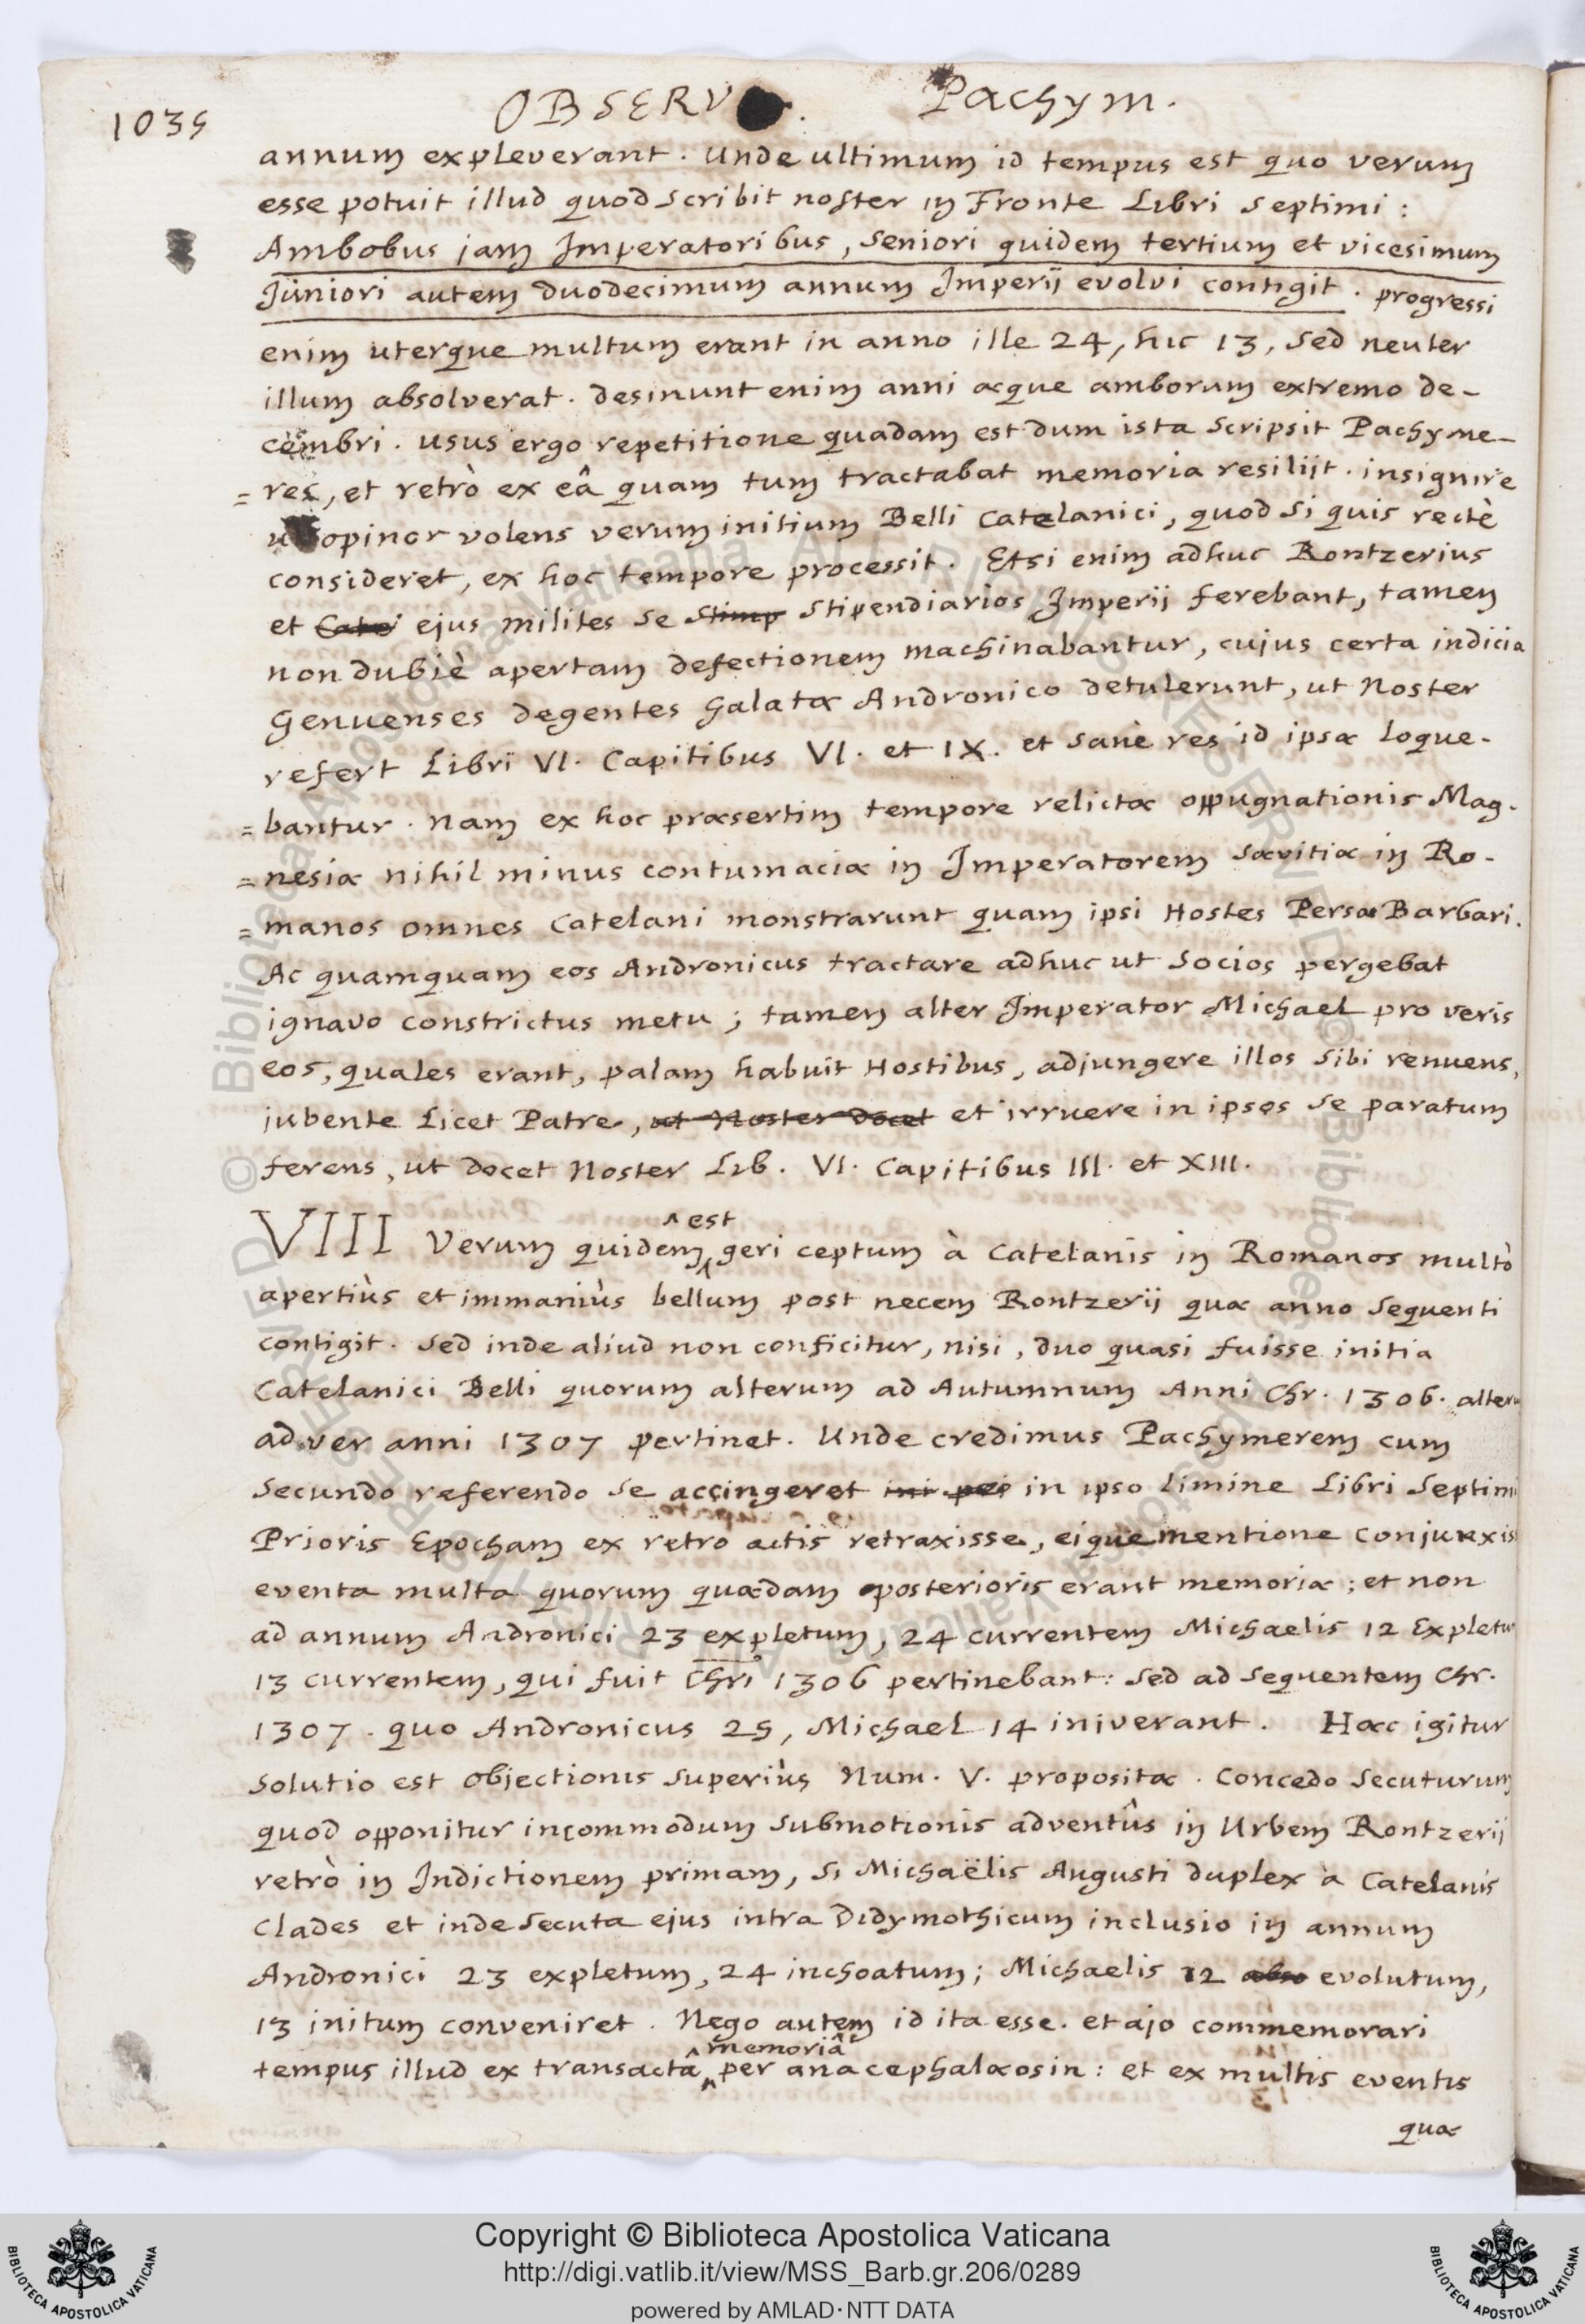 1035
OBSERV . Pachym.
annum expleverant. Unde ultimum id tempus est quo verum
esse potuit illud quod scribit noster in Fronte Libri septimi :
Ambobus jam Imperatoribus, seniori quidem tertium et vicesimum
Juniori autem duodecimum annum Imperij evolvi contigit. progressi
enim uterque multum erant in anno ille 24, hic 13, sed neuter
illum absolverat. desinunt enim anni æque amborum extremo de-
cembri. usus ergo repetitione quadam est dum ista scripsit Pachyme-
= res, et retrò ex eâ quam tum tractabat memoria resilijt. insignire
opinor volens verum initium Belli Catelanici, quod si quis rectè
consideret, ex hoc tempore processit. Etsi enim adhuc Rontzerius
et ejus milites se stipendiarios Imperij ferebant, tamen
non dubiè apertam defectionem machinabantur, cujus certa indicia
Genuenses degentes Galatæ Andronico detulerunt, ut Noster
refert Libri VI. Capitibus VI. et IX. et sanè res id ipsæ loque-
= bantur. nam ex hoc præsertim tempore relictæ oppugnationis Mag-
= nesiæ nihil minus contumaciæ in Imperatorem sævitiæ in Ro-
= manos omnes Catelani monstrarunt quam ipsi Hostes Persæ Barbari.
Ac quamquam eos Andronicus tractare adhuc ut socios pergebat
ignavo constrictus metu ; tamen alter Imperator Michael pro veris
eos, quales erant, palam habuit Hostibus, adjungere illos sibi renuens,
jubente licet Patre, ut Noster docet et irruere in ipsos se paratum
ferens, ut docet Noster Lib. VI. Capitibus III. et XIII.
^ est
VIII Verum quidem ^ geri ceptum à Catelanis in Romanos multò
apertiùs et immaniùs bellum post necem Rontzerij quæ anno sequenti
contigit. Sed inde aliud non conficitur, nisi, duo quasi fuisse initia
Catelanici Belli quorum alterum ad Autumnum Anni Chr. 1306. alteru
ad ver anni 1307 pertinet. Unde credimus Pachymerem cum
secundo referendo se accingeret in ipso limine Libri septimi
Prioris Epocham ex retro actis retraxisse, eique mentione conjunxis
eventa multa quorum quædam posterioris erant memoriæ ; et non
ad annum Andronici 23 expletum, 24 currentem Michaelis 12 expletu
13 currentem, qui fuit Chri 1306 pertinebant: sed ad sequentem Chr.
1307. quo Andronicus 25, Michael 14 iniverant. Hæc igitur
solutio est objectionis superiùs Num. V. propositæ. Concedo secuturum
quod opponitur incommodum submotionis adventûs in Urbem Rontzerij
retrò in Indictionem primam, si Michaëlis Augusti duplex à Catelanis
clades et inde secuta ejus intra Didymothicum inclusio in annum
Andronici 23 expletum, 24 inchoatum; Michaelis 12 evolutum,
13 initum conveniret. Nego autem id ita esse. et ajo commemorari
^ memoriâ
tempus illud ex transacta ^ per anacephalæosin: et ex multis eventis
quæ
Copyright © Biblioteca Apostolica Vaticana
http://digi.vatlib.it/view/MSS_Barb.gr.206/0289
powered by AMLAD·NTT DATA
BIBLIOTECA APOSTOLICA VATICANA
BIBLIOTECA APOSTOLICA VATICANA